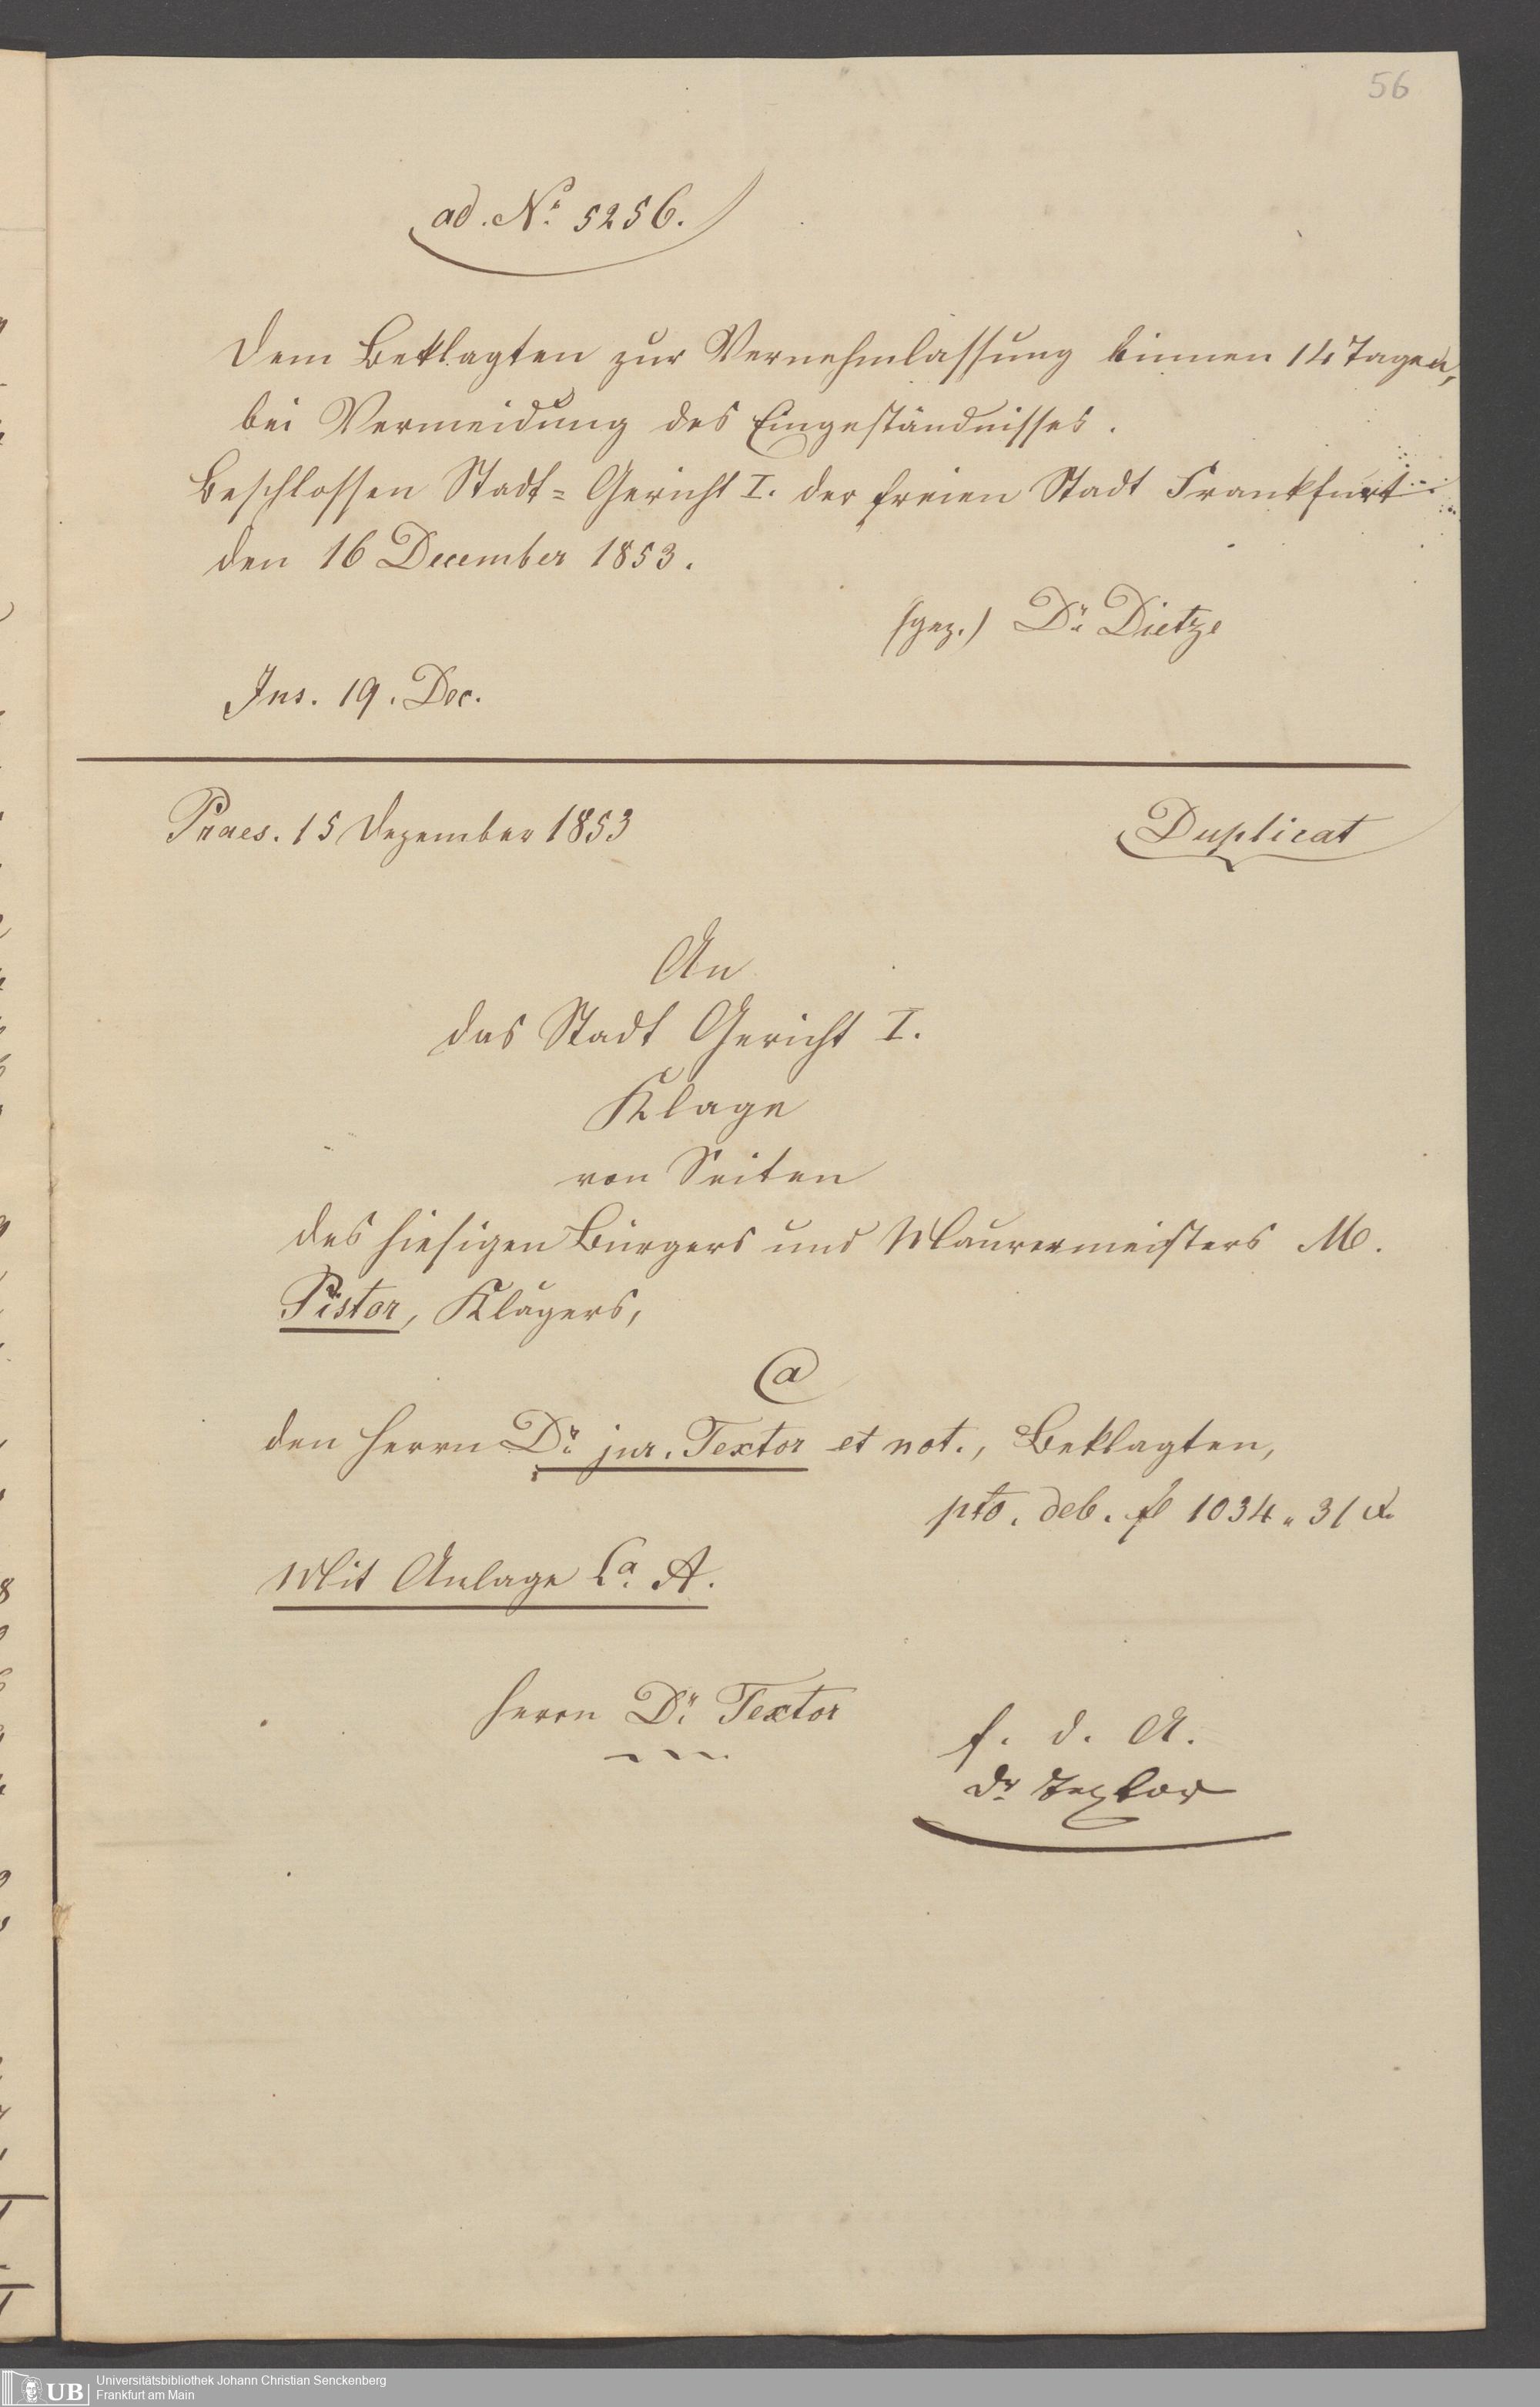 56
ad. No. 5256.
Dem Beklagten zur Vernehmlassung binnen 14 Tagen,
bei Vermeidung des Eingeständnisses.
Beschlossen Stadt= Gericht I. der freien Stadt Frankfurt
den 16 December 1853.
(gez.) Dr. Dietze
Ins. 19. Dec.
Praes. 15 Dezember 1853
Duplicat
An
das Stadt Gericht I.
Klage
von Seiten
des hiesigen Bürgers und Maurermeisters M.
Pistor, Klägers,
@
den Herrn Dr. jur. Textor et not., Beklagten,
pto. deb. fl 1034 " 31 x.
Mit Anlage La. A.
Herrn Dr. Textor
f. d. A.
Dr. Textor
UB
Universitätsbibliothek Johann Christian Senckenberg
Frankfurt am Main